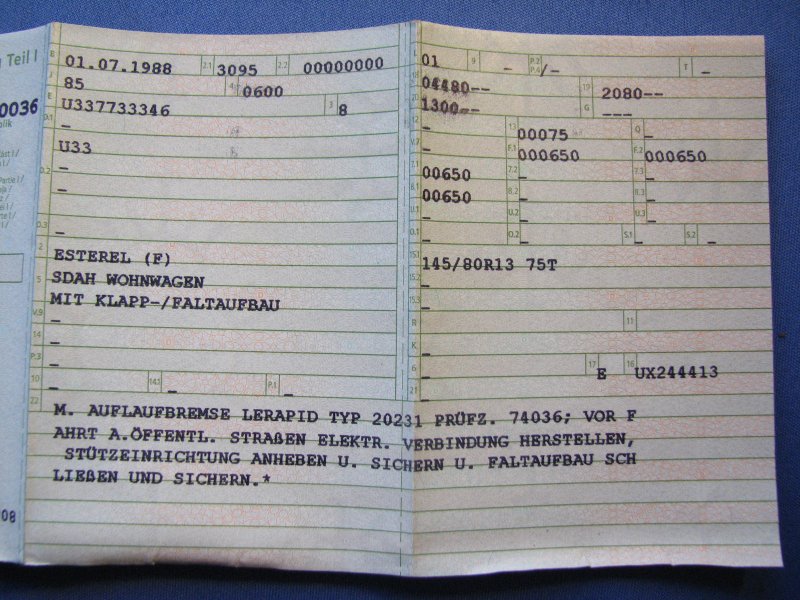 Teil I
B 01.07.1988 2.1 3095 2.2 00000000
J 85 4 0600
E U337733346 3 8
D.1 -
U33
D.2 -
-
D.3 -
2 ESTEREL (F)
SDAH WOHNWAGEN
5 MIT KLAPP-/FALTAUFBAU
V.9 -
14 -
P.3 -
10 - 14.1 - P.1 -
L 01 9 - P.2 P.4 -/- T -
18 04480-- 19 2080--
20 1300-- G ---
12 - 13 00075 Q -
V.7 - F.1 000650 F.2 000650
7.1 00650 7.2 - 7.3 -
8.1 00650 8.2 - 8.3 -
U.1 - U.2 - U.3 -
O.1 - O.2 - S.1 - S.2 -
15.1 145/80R13 75T
15.2 -
15.3 -
R 11
K -
6 - 17 E 16 UX244413
21 -
22 M. AUFLAUFBREMSE LERAPID TYP 20231 PRÜFZ. 74036; VOR F
AHRT A.ÖFFENTL. STRAßEN ELEKTR. VERBINDUNG HERSTELLEN,
STÜTZEINRICHTUNG ANHEBEN U. SICHERN U. FALTAUFBAU SCH
LIEßEN UND SICHERN.*
0036
08